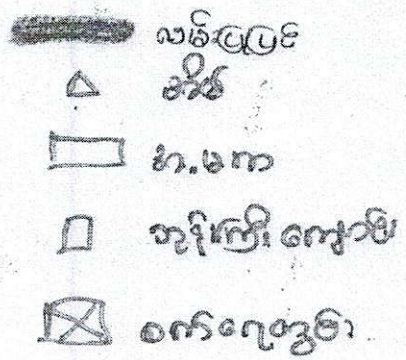 လမ်းပြုပြင်
အိမ်
အ.မ.က
ဘုန်းကြီးကျောင်း
စက်ရေတွင်း